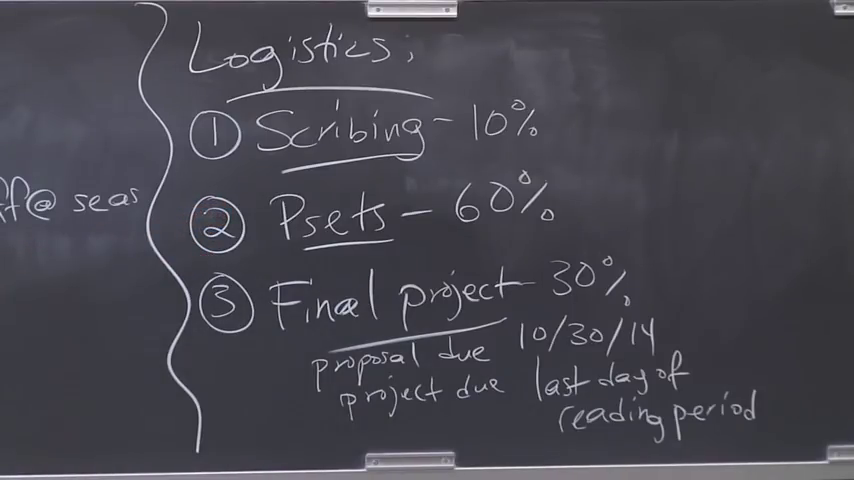 Logistics:
① Scribing - 10%
② Psets - 60%
③ Final project - 30%
proposal due 10/30/14
project due last day of
reading period
ff@ seas